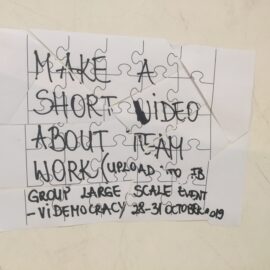 MAKE A
SHORT VIDEO
ABOUT TEAM
WORK (UPLOAD TO FB
GROUP LARGE SCALE EVENT
- VIDEMOCRACY 28-31 OCTOBER 2019